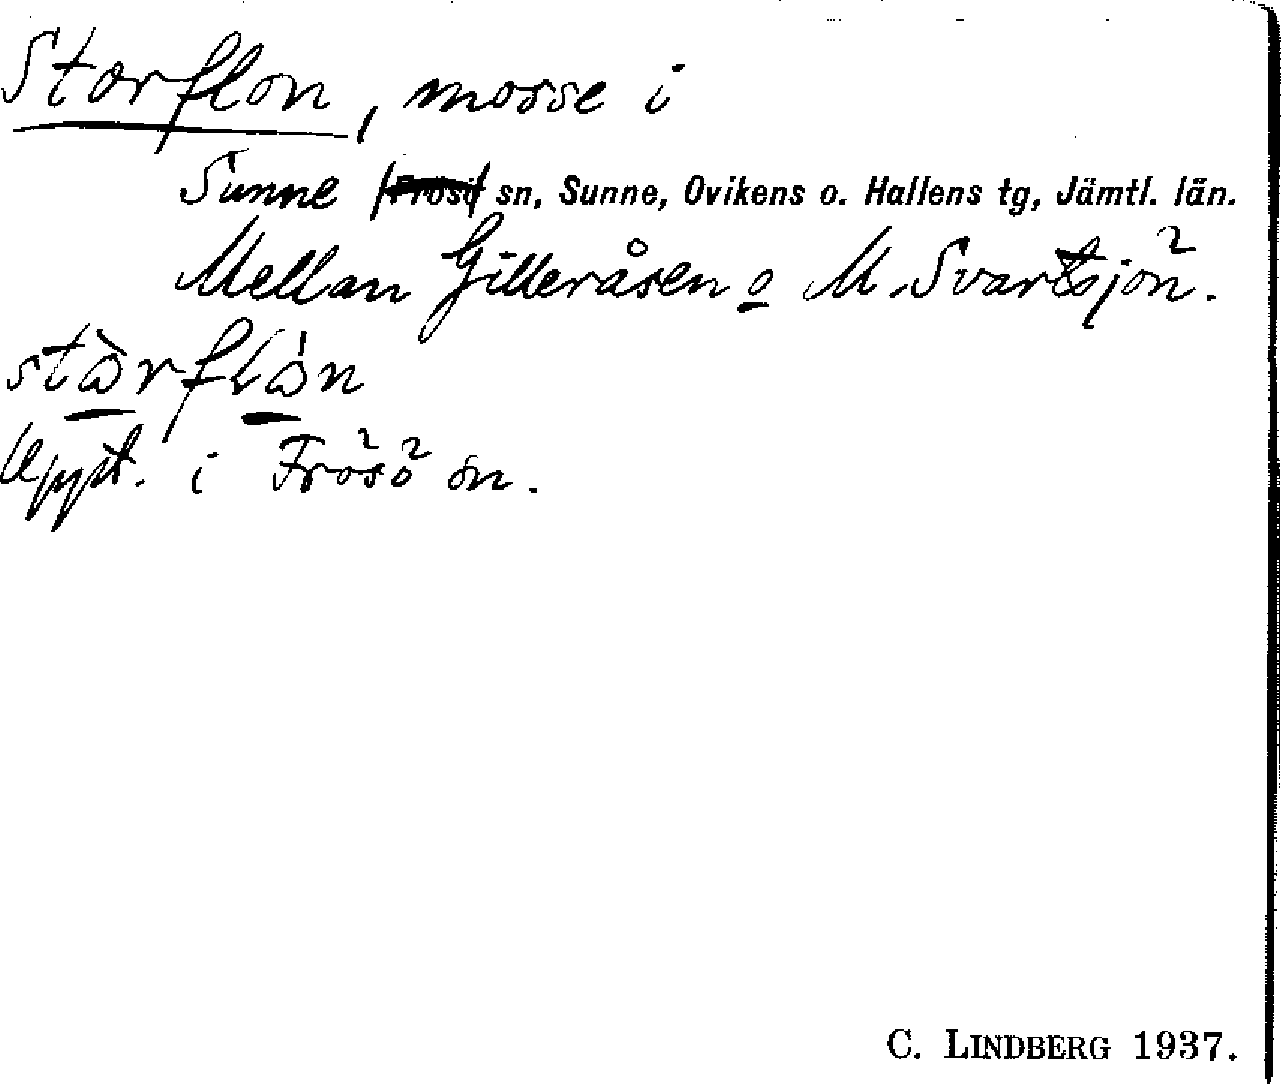 Storflon, mosse i
Sunne (Frösö) sn, Sunne, Ovikens o. Hallens tg, Jämtl. län.
Mellan Gilleråsen o M. Svartsjön.
Uppt. i Frösö sn.
C. LINDBERG 1937.